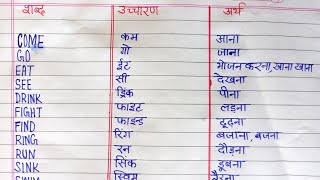 शब्द उच्चारण अर्थ
COME कम आना
GO गो जाना
EAT ईट भोजन करना, खाना खाना
SEE सी देखना
DRINK ड्रिंक पीना
FIGHT फाइट लड़ना
FIND फाइन्ड ढूढ़ना
RING रिंग बजाना, बजना
RUN रन दौड़ना
SINK सिंक डूबना
SWIM स्विम तैरना